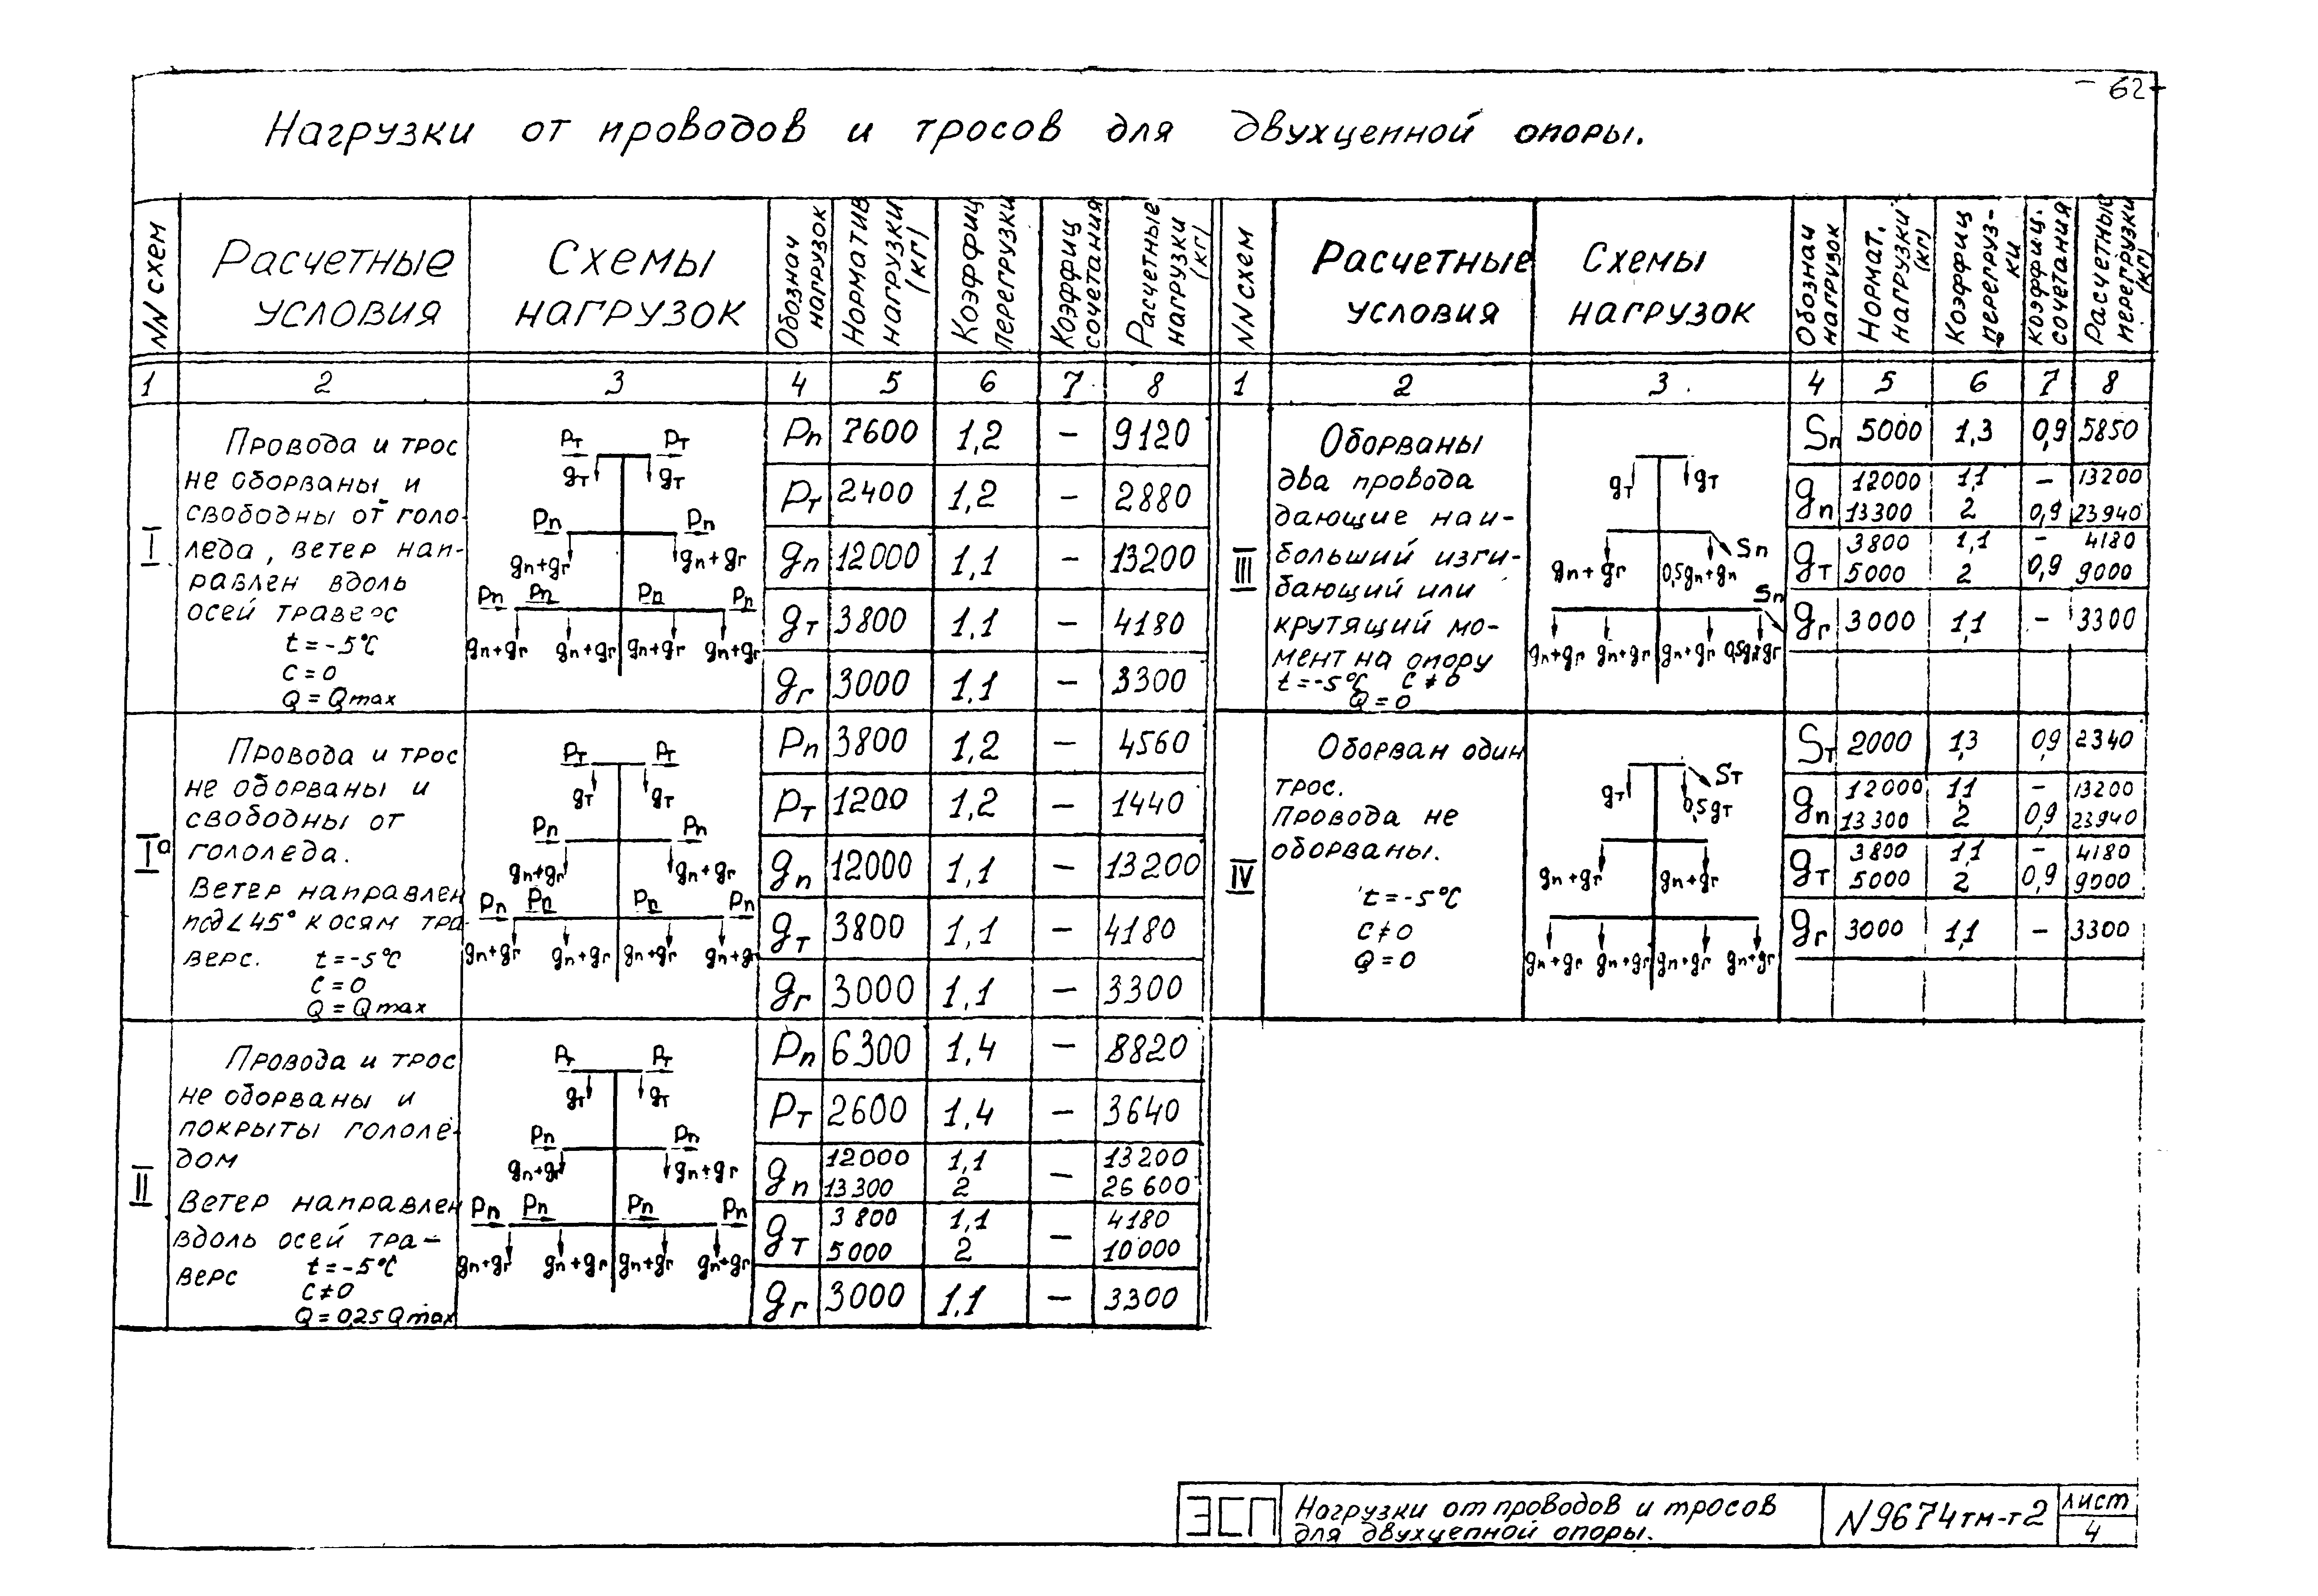 - 62 -
Нагрузки от проводов и тросов для двухцепной опоры.
NN схем
Расчетные условия
Схемы нагрузок
Обознач нагрузок
Норматив нагрузки (кг)
Коэффиц перегрузки
Коэффиц сочетания
Расчетные нагрузки (кг)
1 2 3 4 5 6 7. 8
I
Провода и трос
не оборваны и
свободны от голо-
леда, ветер нап-
равлен вдоль
осей траверс
t = -5°C
C = 0
Q = Qmax
Рт Рт
gт gт
Рп Рп
gп+gг gп+gг
Рп Рп Рп Рп
gп+gг gп+gг gп+gг gп+gг
Рп 7600 1,2 – 9120
Рт 2400 1,2 – 2880
gп 12000 1,1 – 13200
gт 3800 1,1 – 4180
gг 3000 1,1 – 3300
Iа
Провода и трос
не оборваны и
свободны от
гололеда.
Ветер направлен
под ∠45° к осям тра-
верс. t = -5°C
C = 0
Q = Qmax
Рт Рт
gт gт
Рп Рп
gп+gг gп+gг
Рп Рп Рп Рп
gп+gг gп+gг gп+gг gп+gг
Рп 3800 1,2 – 4560
Рт 1200 1,2 – 1440
gп 12000 1,1 – 13200
gт 3800 1,1 – 4180
gг 3000 1,1 – 3300
II
Провода и трос
не оборваны и
покрыты гололе-
дом
Ветер направлен
вдоль осей тра-
верс t = -5°C
C ≠ 0
Q = 0,25 Qmax
Рт Рт
gт gт
Рп Рп
gп+gг gп+gг
Рп Рп Рп Рп
gп+gг gп+gг gп+gг gп+gг
Рп 6300 1,4 – 8820
Рт 2600 1,4 – 3640
gп 12000 1,1 – 13200
13300 2 26600
gт 3800 1,1 – 4180
5000 2 10000
gг 3000 1,1 – 3300
NN схем
Расчетные условия
Схемы нагрузок
Обознач нагрузок
Нормат. нагрузки (кг)
Коэффиц перегруз-ки
Коэффиц. сочетания
Расчетные перегрузки (кг)
1 2 3. 4 5 6 7 8
III
Оборваны
два провода
дающие наи-
больший изги-
бающий или
крутящий мо-
мент на опору
t = -5°C C ≠ 0
Q = 0
gт gт
Sп
gп+gг 0,5gп+gп
Sп
gп+gг gп+gг gп+gг 0,5gп gг
Sп 5000 1,3 0,9 5850
gп 12000 1,1 – 13200
13300 2 0,9 23940
gт 3800 1,1 – 4180
5000 2 0,9 9000
gг 3000 1,1 – 3300
IV
Оборван один
трос.
Провода не
оборваны.
t = -5°C
C ≠ 0
Q = 0
gт Sт
0,5gт
gп+gг gп+gг
gп+gг gп+gг gп+gг gп+gг
Sт 2000 1,3 0,9 2340
gп 12000 1,1 – 13200
13300 2 0,9 23940
gт 3800 1,1 – 4180
5000 2 0,9 9000
gг 3000 1,1 – 3300
ЭСП
Нагрузки от проводов и тросов
для двухцепной опоры.
N9674тм-т2
лист
4